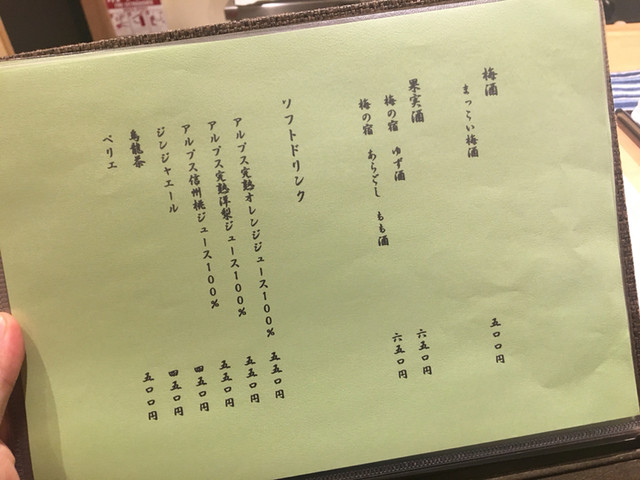 梅酒
まっこい梅酒 五〇〇円
果実酒
梅の宿 ゆず酒 六五〇円
梅の宿 あらごし もも酒 六五〇円
ソフトドリンク
アルプス完熟オレンジジュース100% 五五〇円
アルプス完熟洋梨ジュース100% 五五〇円
アルプス信州桃ジュース100% 五五〇円
ジンジャエール 四五〇円
烏龍茶 四五〇円
ペリエ 五〇〇円